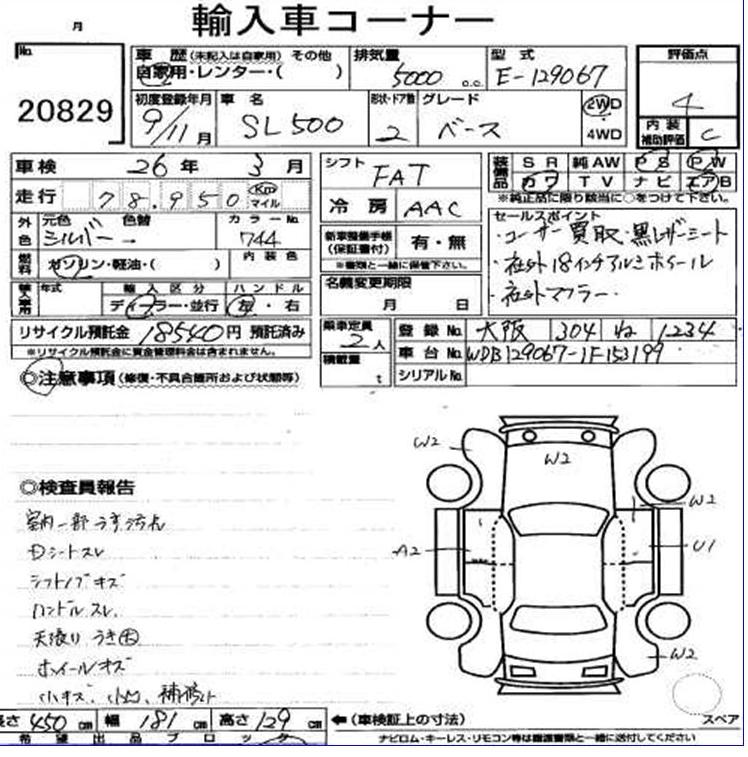 月
輸入車コーナー
No.
20829
車歴 (未記入は自家用) その他
自家用・レンター・( )
排気量
5000 c.c.
型式
E-129067
評価点
4
内装補助評価
C
初度登録年月
9/11月
車名
SL500
形状・ドア数
2
グレード
ベース
2WD
4WD
車検 26年 3月
走行 78,950 Km マイル
外色
元色 色替
シルバー
カラーNo.
744
燃料
ガソリン・軽油・( )
内装色
輸入車用
年式
輸入区分
ディーラー・並行
ハンドル
左・右
リサイクル預託金 18540円 預託済み
※リサイクル預託金に資金管理料金は含まれません。
シフト FAT
冷房 AAC
新車整備手帳(保証書付) 有・無
※書類と一緒に保管下さい。
名義変更期限
月 日
乗車定員
2人
積載量
t
装備品
SR 純AW PS PW
カワ TV ナビ エアB
※純正品に限り該当に○をつけて下さい。
セールスポイント
・ユーザー買取・黒レザーシート
・社外18インチアルミホイール
・社外マフラー
登録No. 大阪 304 ね 1234
車台No. WDB129067-1F153199
シリアルNo.
◎注意事項 (修復・不具合箇所および状態等)
◎検査員報告
室内一部うす汚れ
Dシートスレ
シフトノブキズ
ハンドルスレ
天張りうき大
ホイールキズ
小キズ、小凹、補修跡
W2
W2
W2
W2
A2
U1
長さ 450cm 幅 181cm 高さ 129cm ←(車検証上の寸法)
スペア
希望出品ブロック
ナビロム・キーレス・リモコン等は譲渡書類と一緒に送付してください